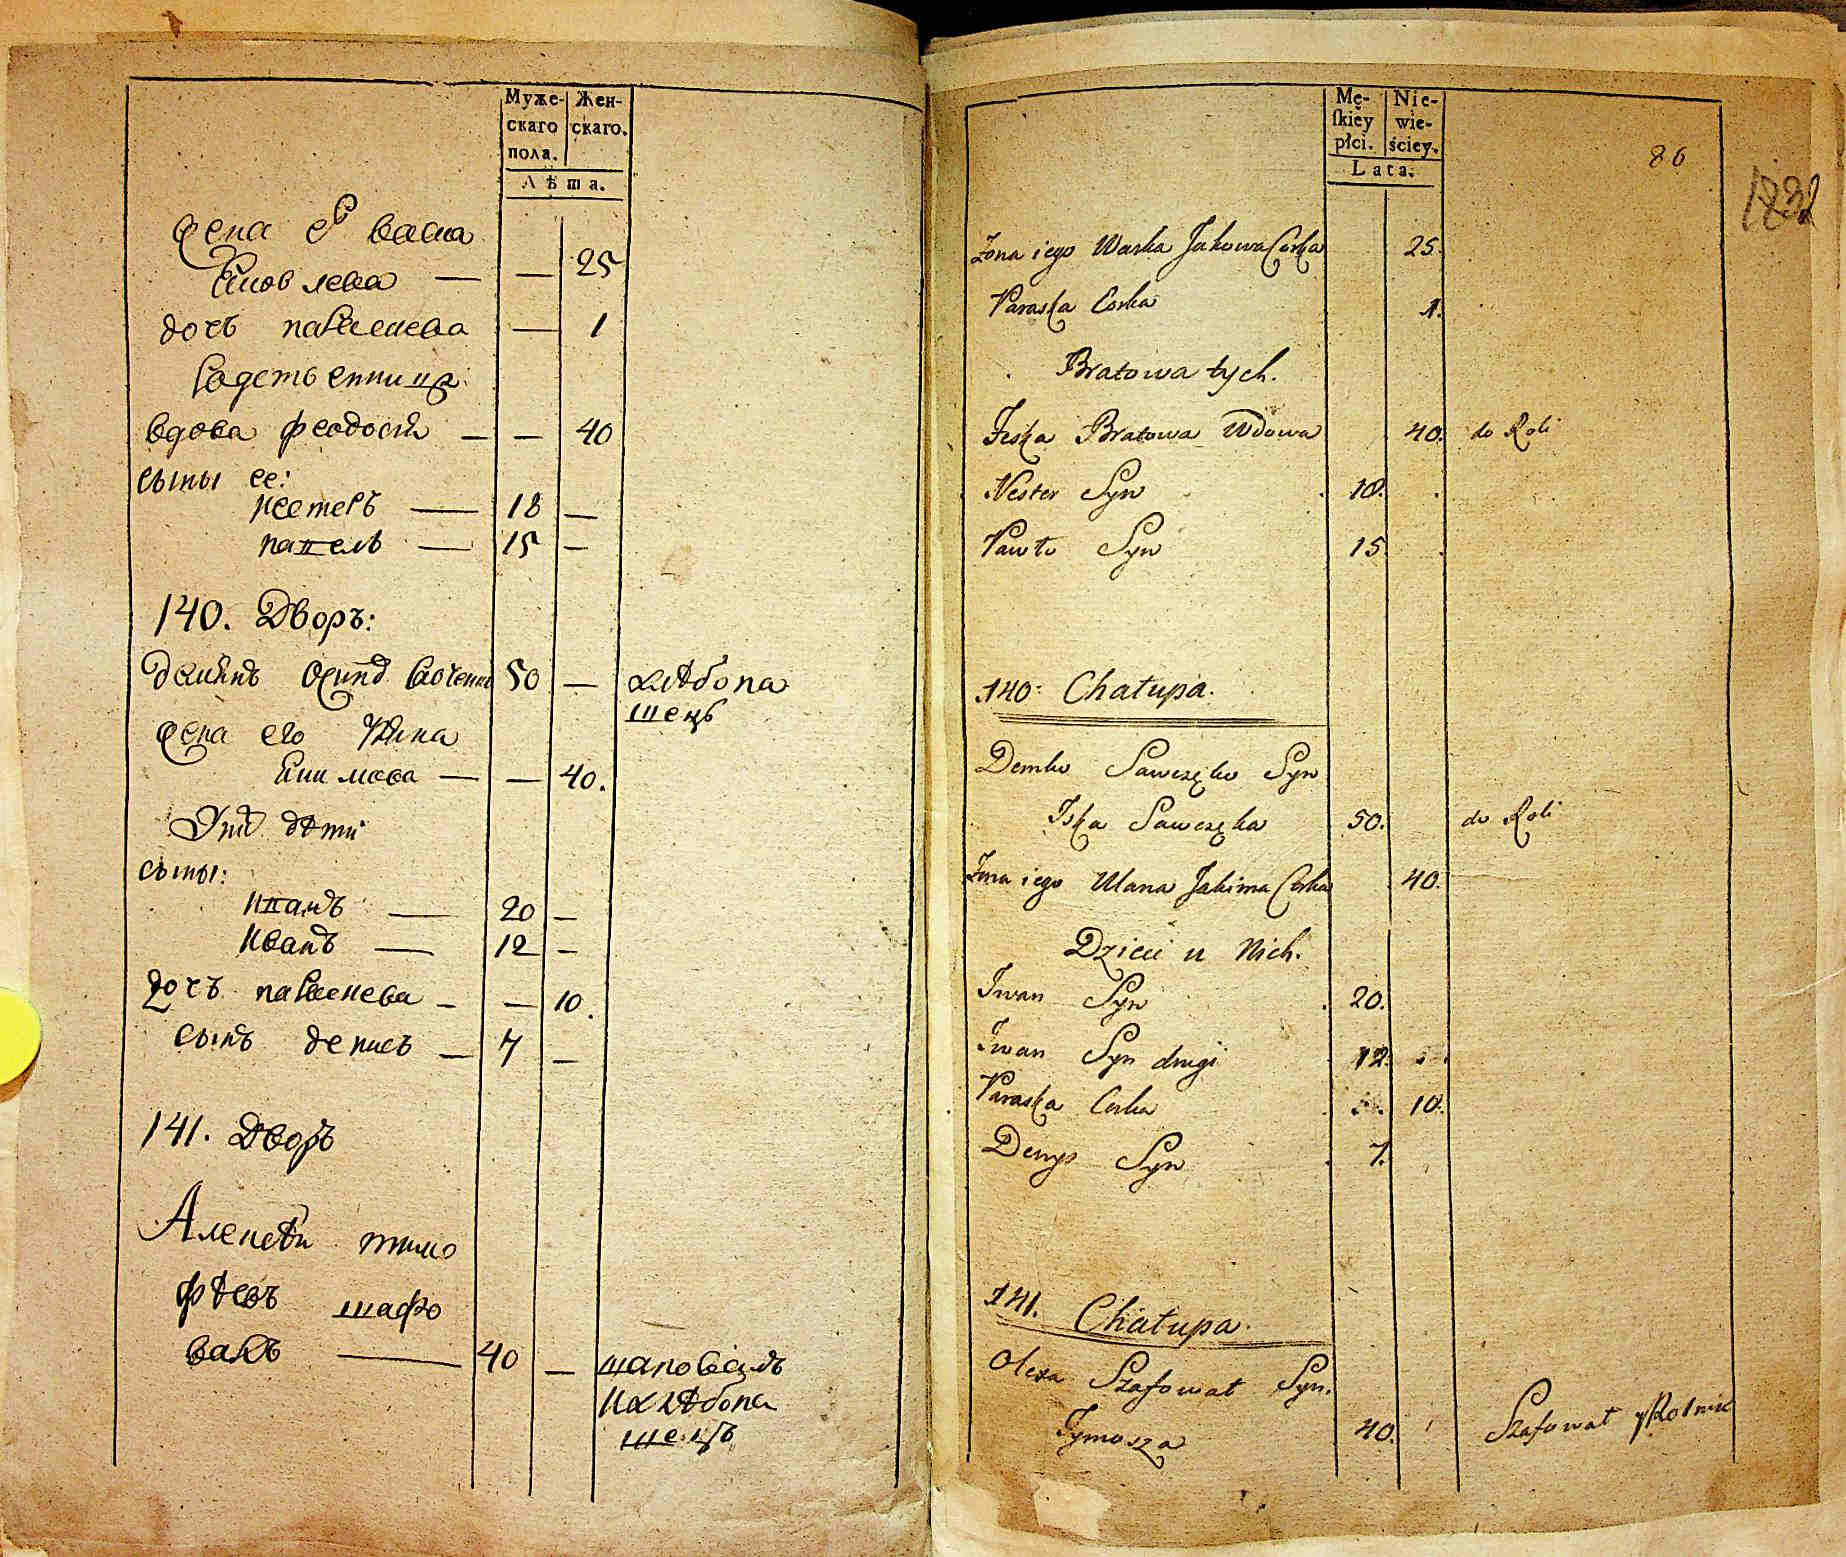 Муже-
скаго
пола.
Жен-
скаго.
Лѣта.
жена его васка
Яковлева — — 25
дочь параскева — 1
вдова феодосія — — 40
сыны ее:
нестеръ — 18 —
павелъ — 15 —
140. Дворъ:
деміянъ 50 — хлѣбопа
шецъ
жена его Уляна
Якимова — — 40.
У нихъ дѣти
сыны:
иванъ — 20 —
иванъ — 12 —
дочь параскева — — 10.
сынъ денисъ — 7 —
141. Дворъ
Алексѣй тимо
фѣевъ шафо
валъ — 40 — шаповалъ
и хлѣбопа
шецъ
Mę-
skiey
płci.
Nie-
wie-
ściey.
Lata.
86
Żona iego Waska Jakowa Corka 25.
Paraska Corka 1.
Bratowa tych.
Feska Bratowa Wdowa 40. do Roli
Nester Syn 18.
Pawło Syn 15.
140. Chałupa.
Demko Sawczęko Syn
Iska Sawczęka 50. do Roli
Żona iego Ulana Jakima Corka 40.
Dzieci u Nich.
Iwan Syn 20.
Iwan Syn drugi 12.
Paraska Corka 10.
Denys Syn 7.
141. Chałupa.
Olexa Szafował Syn.
Tymosza 40. Szafował y Rolnik